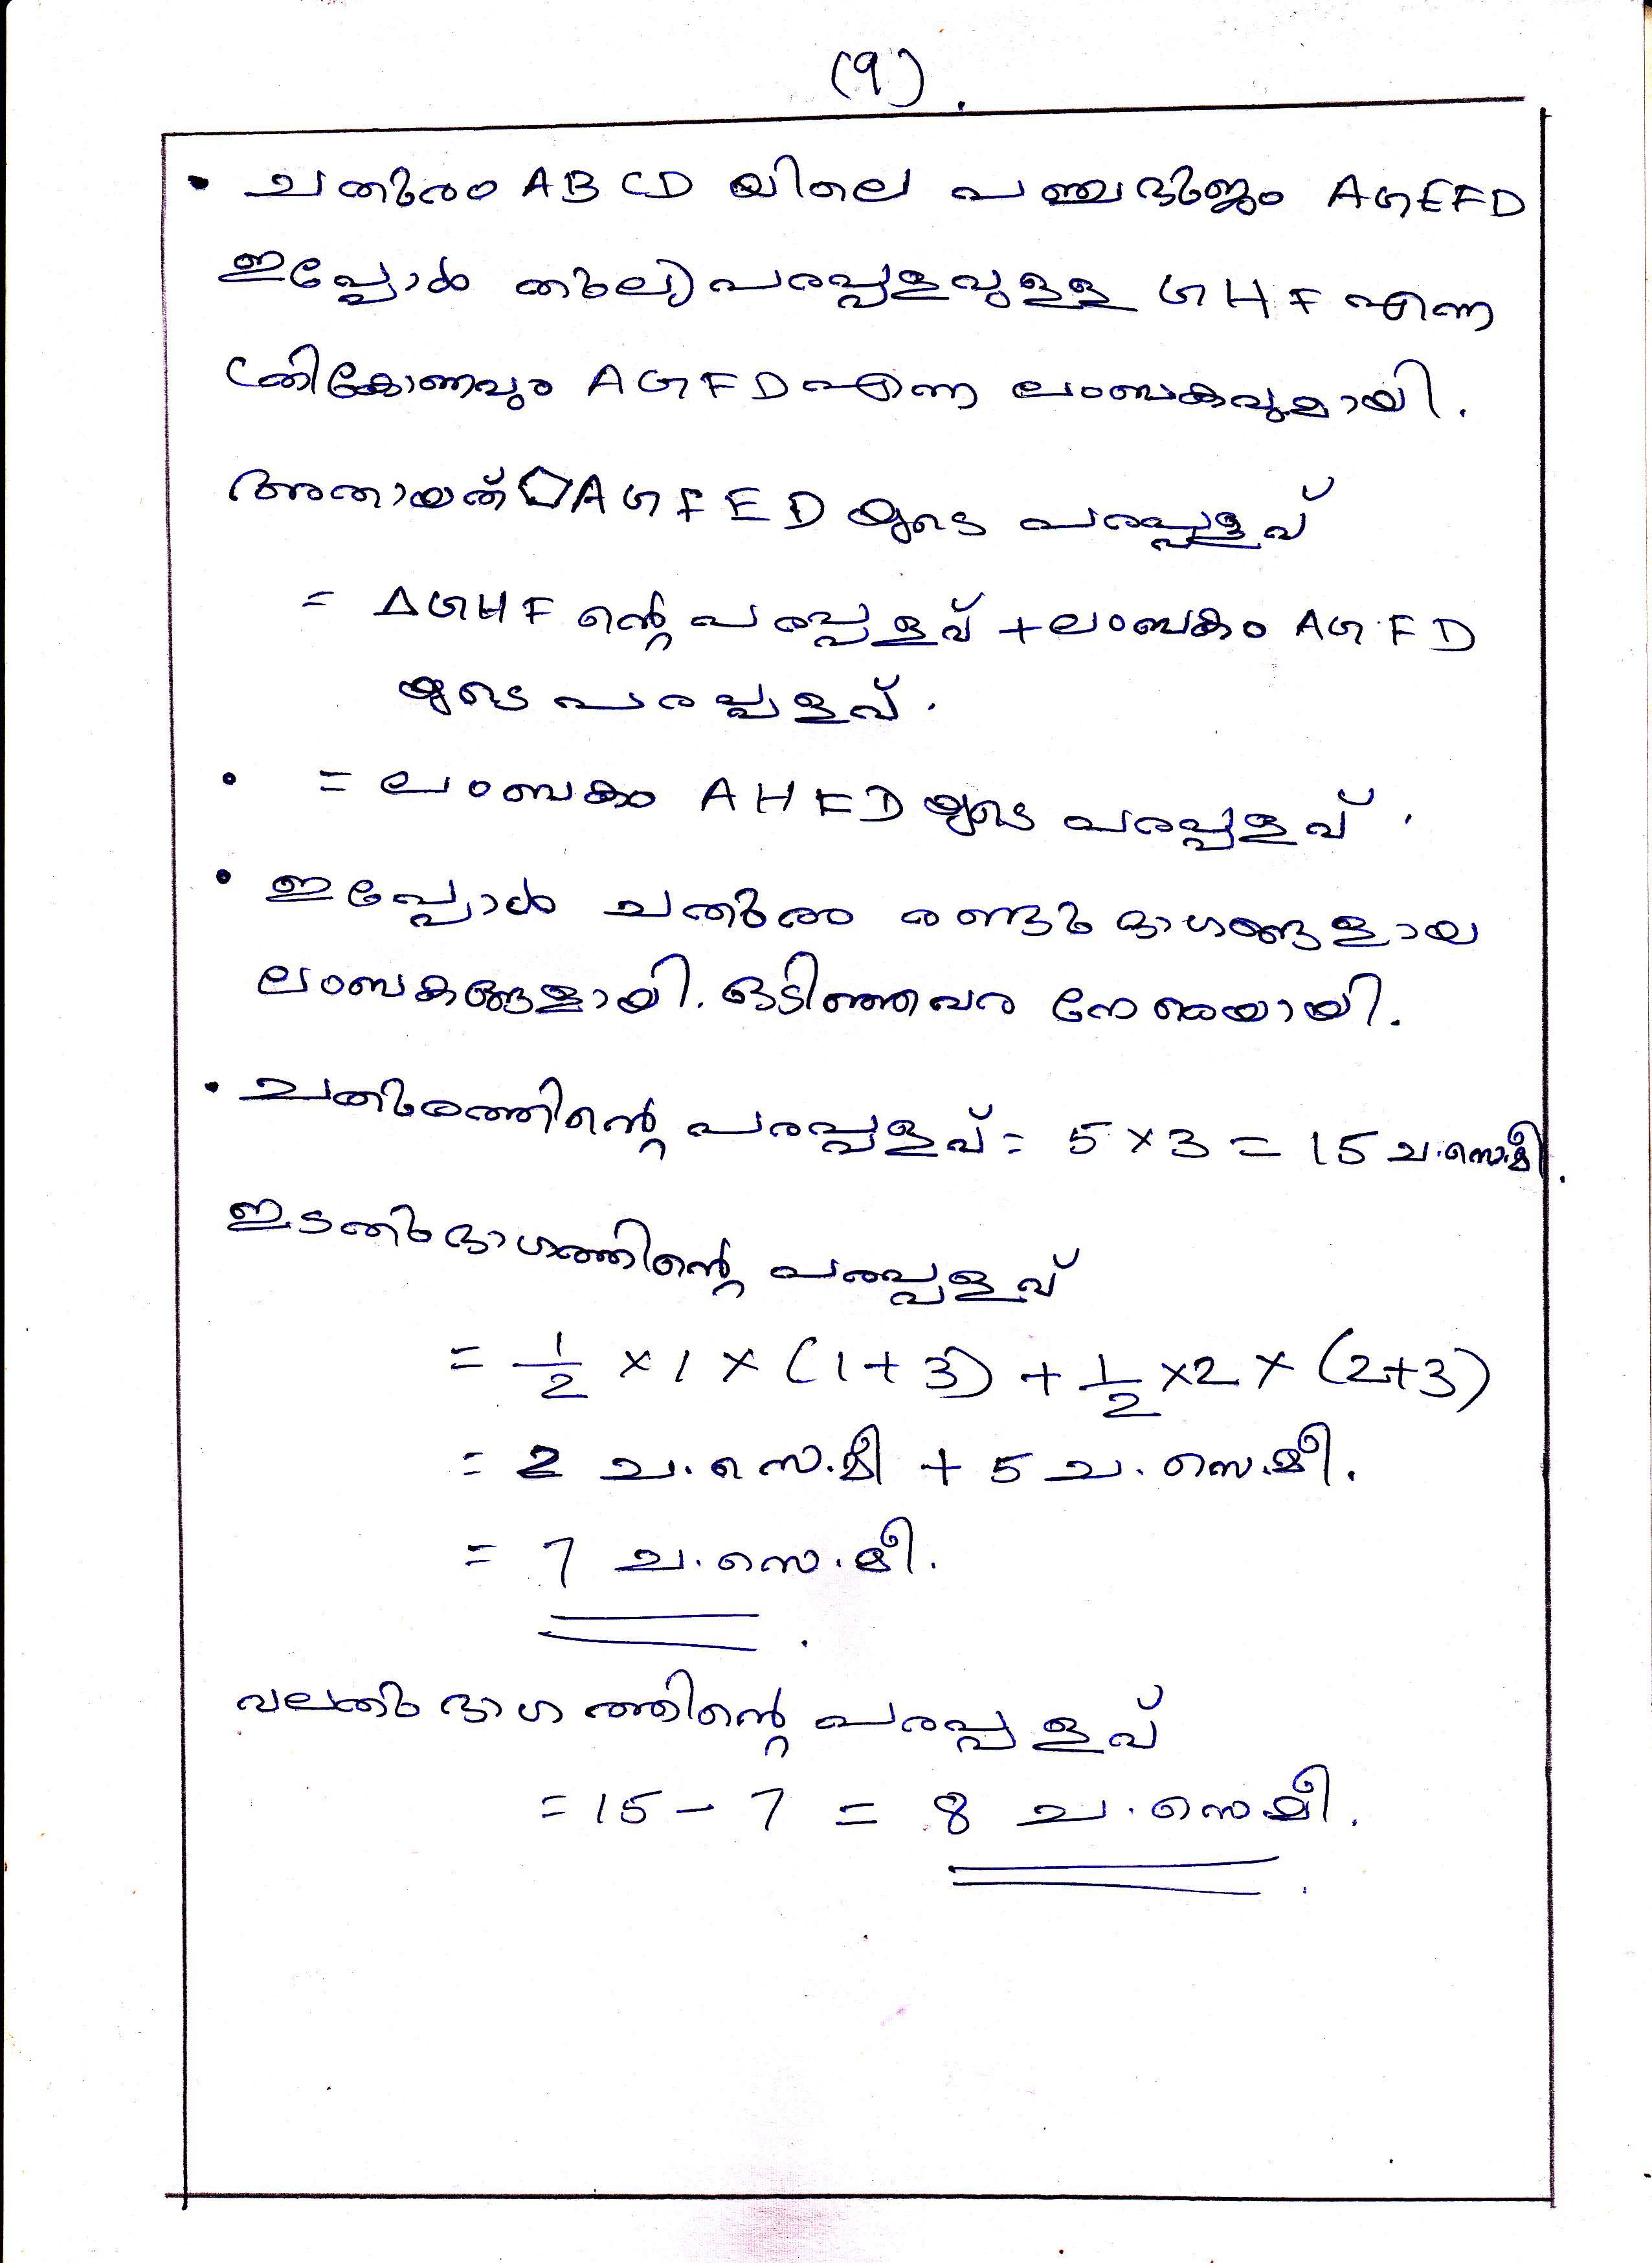 (9).
• ചതുരം ABCD യിലെ പഞ്ചഭുജം AGEFD
ഇപ്പോൾ തുല്യപരപ്പളവുള്ള GHF എന്ന
ത്രികോണവും AGFD എന്ന ലംബകവുമായി.
അതായത് ⬠AGFED യുടെ പരപ്പളവ്
= ΔGHF ന്റെ പരപ്പളവ് + ലംബകം AGFD
യുടെ പരപ്പളവ്.
• = ലംബകം AHFD യുടെ പരപ്പളവ്.
• ഇപ്പോൾ ചതുരം രണ്ടു ഭാഗങ്ങളായ
ലംബകങ്ങളായി. ഒടിഞ്ഞവര നേരെയായി.
• ചതുരത്തിന്റെ പരപ്പളവ് = 5 × 3 = 15 ച.സെ.മീ.
ഇടതുഭാഗത്തിന്റെ പരപ്പളവ്
= 1/2 × 1 × (1+3) + 1/2 × 2 × (2+3)
= 2 ച.സെ.മീ + 5 ച.സെ.മീ.
= 7 ച.സെ.മീ.
വലതുഭാഗത്തിന്റെ പരപ്പളവ്
= 15 - 7 = 8 ച.സെ.മീ.